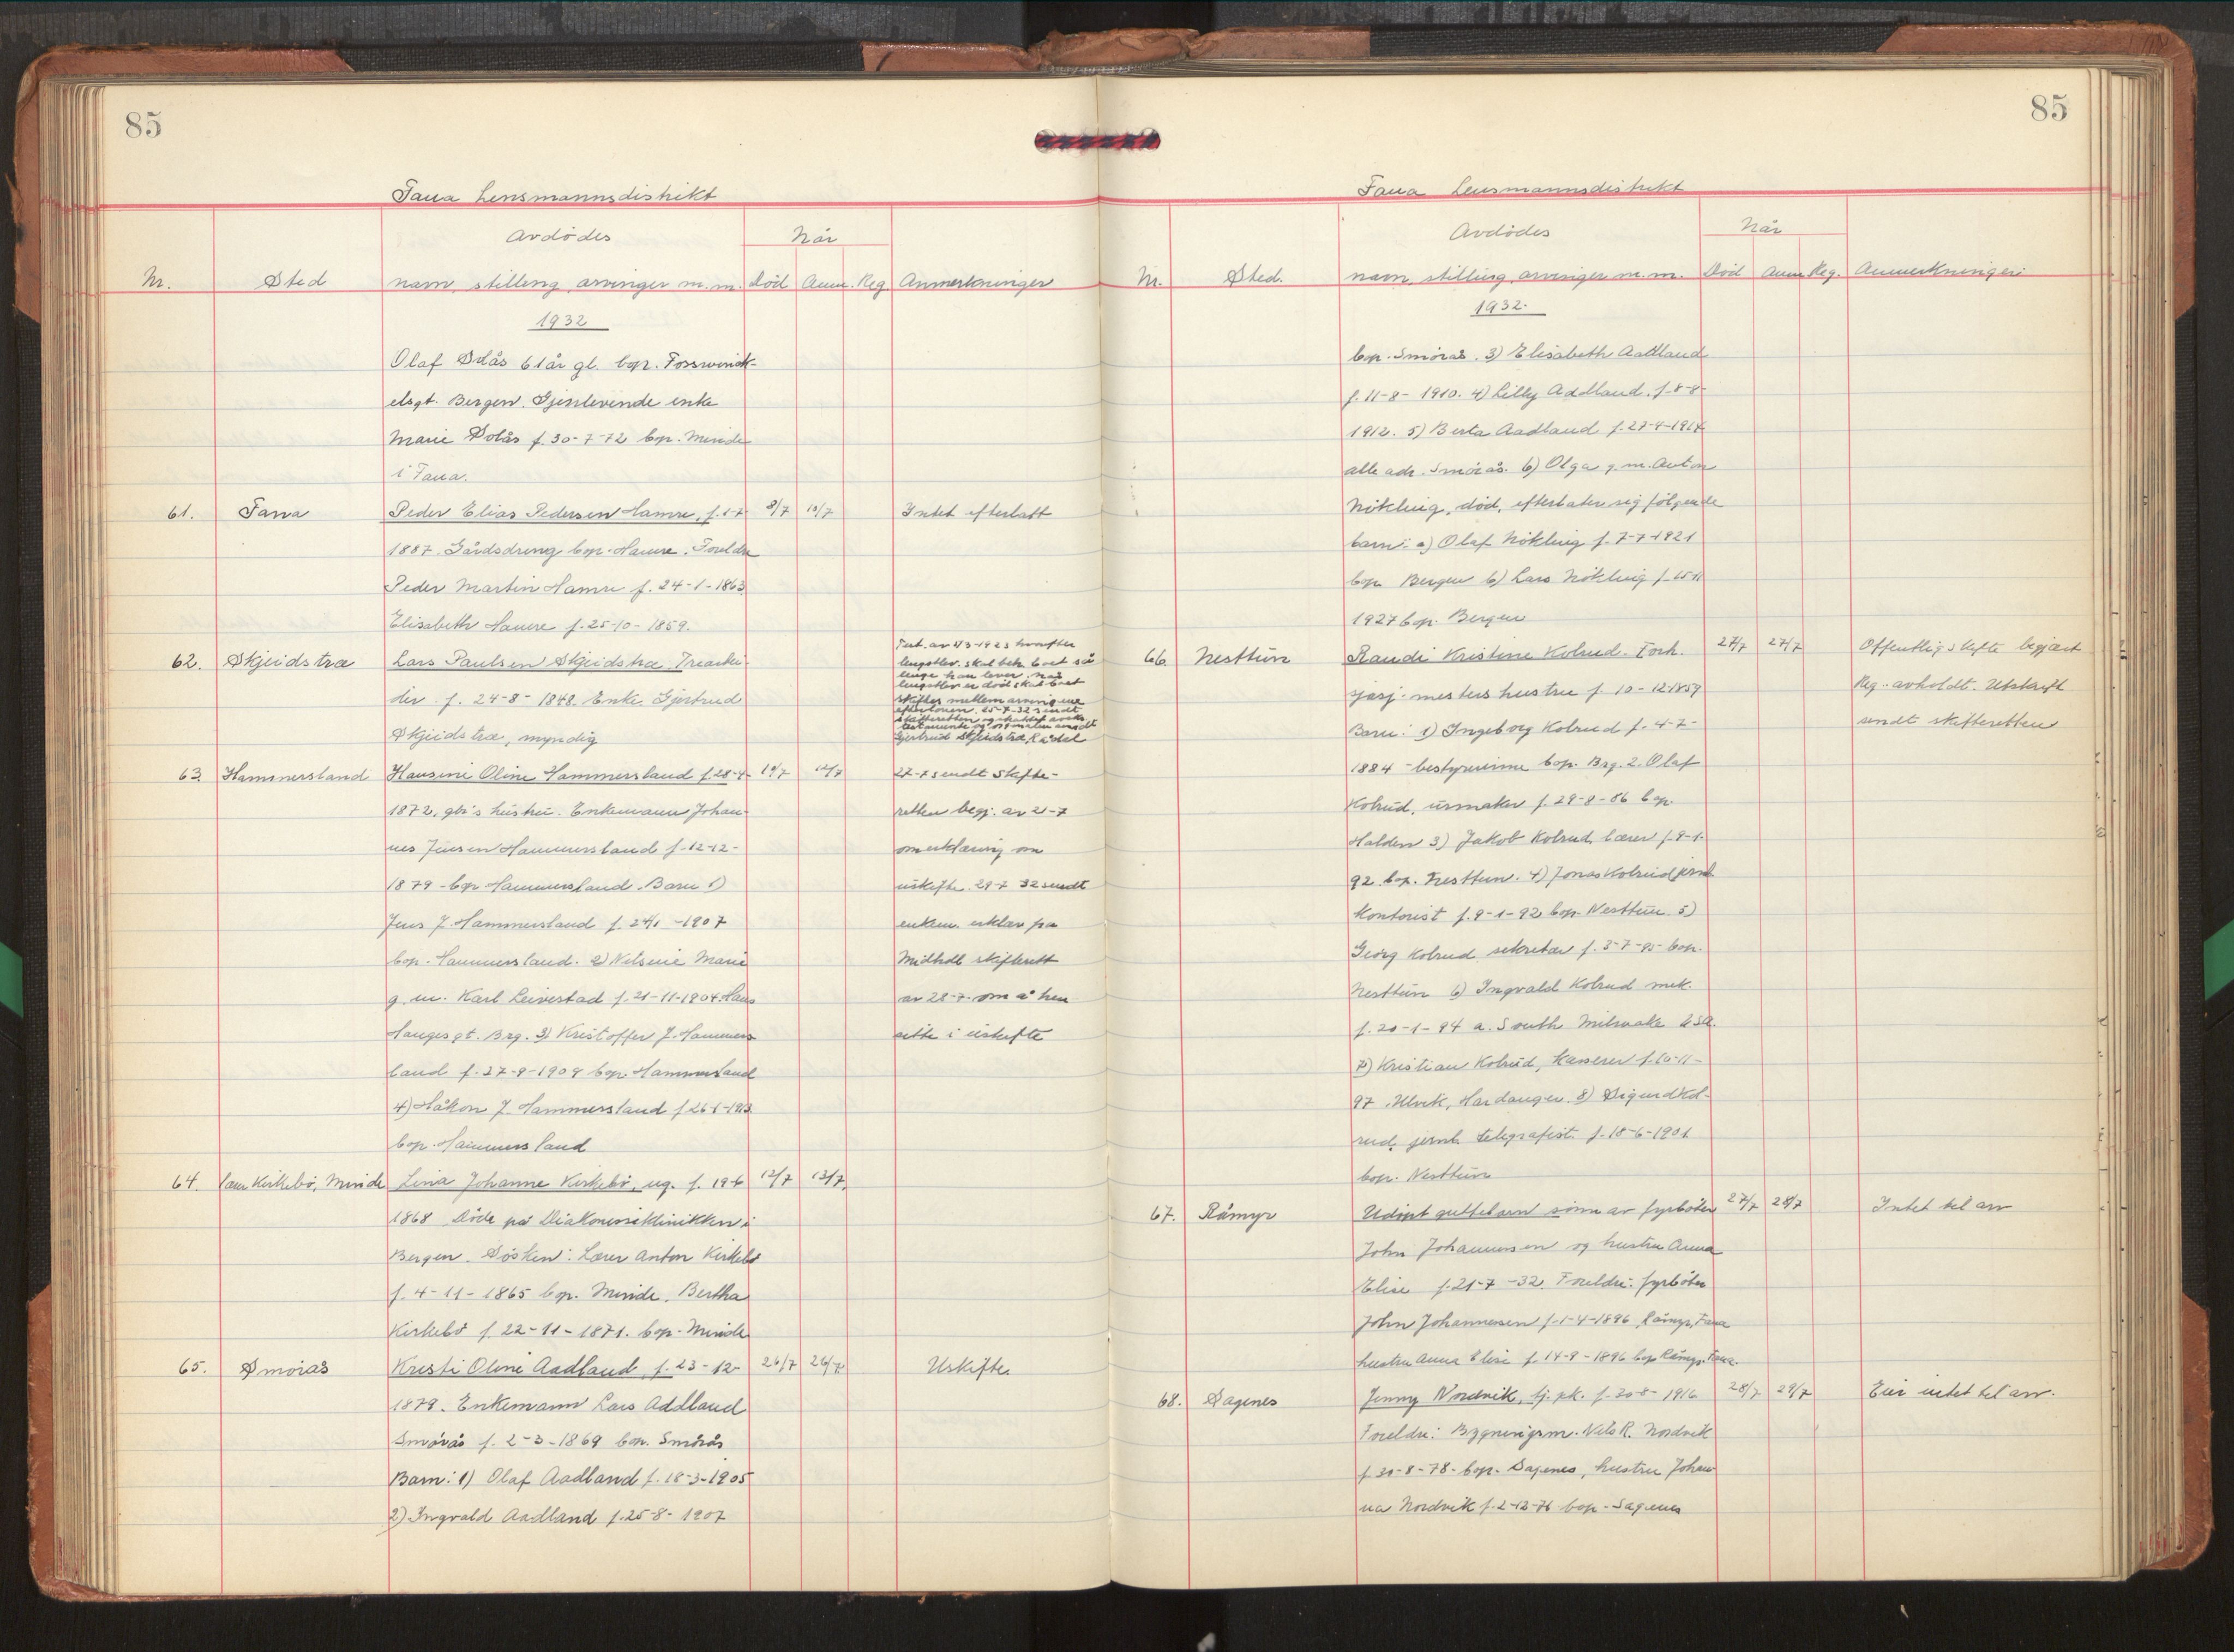 85
Fana Lensmannsdistrikt
Avdödes
Når
Nr. Sted navn stilling arvinger m.m. Död Anm. Reg Anmerkninger
1932
Olaf Solås 61 år gl. bop. Fosswinck-
elsgt. Bergen. Gjenlevende enke
Marie Solås f. 30-7-72 bop. Minde
i Fana.
61. Fana Peder Elias Pedersen Hamre, f. 1-7- 8/7 13/7 Intet efterlatt
1887. Gårdsdreng bop. Hamre. Foreldre
Peder Martin Hamre f. 24-1-1863
Elisabeth Hamre f. 25-10-1859.
62. Skjeidstræ Lars Paulsen Skjeidstræ. Trearbei-
der f. 24-8-1848. Enke Gjertrud
Skjeidstræ, myndig
Test. av 1923 hvorefter
lengstlev. skal beh. boet så
lenge han lever, når
lengstlev er död skal boet
skiftes mellem arvingene
25-7-32 sendt
skifteretten
Gjertrud Skjeidstræ, Rådal
63. Hammersland Hansine Oline Hammersland f. 28-4- 10/7 12/7 27-7 sendt skifte-
1872, gbr's hustru. Enkemann Johan- retten begj. av 21-7
nes Jensen Hammersland f. 12-12- om erklæring om
1879 - bop Hammersland. Barn 1) uskifte. 29-7 32 sendt
Jens J. Hammersland f. 24/1 -1907 enkem. erklær. fra
bop. Hammersland. 2) Nelsine Marie Midthdl skifterett
g. m. Karl Leivestad f. 21-11-1904 Hans av 28-7. om å hen
Haugesgt. Brg. 3) Kristoffer J. Hammers sitte i uskifte
land f. 27-9-1909 bop. Hammersland
4) Håkon J. Hammersland f. 26-1-1913
bop. Hammersland
64. Kirkebö, Minde Lina Johanne Kirkebö, ug. f. 19-6 12/7 13/7.
1868 Döde på Diakonisseklinikken i
Bergen. Søsken: Lærer Anton Kirkebö
f. 4-11-1865 bop. Minde. Bertha
Kirkebö f. 22-11-1871. bop. Minde
65. Smörås Kristi Oline Aadland, f. 23-12- 26/7 26/7 Uskifte.
1879. Enkemann Lars Addland
Smörås f. 2-3-1869 bop. Smörås
Barn: 1) Olaf Aadland f. 18-3-1905
2) Ingvald Aadland f. 25-8-1907
85
Fana Lensmannsdistrikt
Avdödes
Når
Nr. Sted. navn stilling arvinger m.m. Död Anm Reg. Anmerkninger
1932.
bop. Smörås. 3) Elisabeth Aadland
f. 11-8-1910. 4) Lilly Addland. f. 8-8-
1912. 5) Berta Aadland f. 27-4-1914
alle adr. Smörås. 6) Olga g. m. Anton
Nökling, död, efterlater sig fölgende
barn: a) Olaf Nökling f. 7-7-1921
bop Bergen b) Lars Nökling f. 15-11
1927 bop. Bergen
66. Nesttun Raudi Kristine Kolrud. Forh. 27/7 27/7 Offentlig skifte begjært
mesters hustru f. 10-12-1859 Reg. avholdt. Utskrift
Barn: 1) Ingeborg Kolrud f. 4-7- sendt skifteretten
1884 - bestyrerinne bop. Brg. 2. Olaf
Kolrud, urmaker f. 29-8-86 bop.
Halden 3) Jakob Kolrud, lærer f. 9-1-
92 bop. Nesttun. 4) Jonas Kolrud jernb
kontorist f. 9-1-92 bop. Nesttun 5)
Georg Kolrud sekretær f. 3-7-95 bop.
Nesttun 6) Ingvald Kolrud mek.
f. 20-1-94 a. South Milwake USA.
7) Kristian Kolrud, kasserer f. 10-11-
97. Ulvik, Hardanger. 8) Sigurd Kol-
rud, jernb. telegrafist. f. 18-6-1901
bop. Nesttun
67. Råmyr Udöpt guttebarn sönn av fyrböter 27/7 28/7 Intet til arv
John Johannessen og hustru Anna
Elise f. 21-7-32. Foreldre: fyrböter
John Johannessen f. 1-4-1896 Råmyr, Fana
hustru Anna Elise f. 14-9-1896 bop Råmyr. Fana.
68. Sagenes Jenny Nordvik, tj. pk. f. 20-8-1916 28/7 29/7 Eier intet til arv.
Foreldre: Bygningsm. Nels R. Nordvik
f. 30-8-78. bop. Sagenes, hustru Johan
na Nordvik f. 2-12-76 bop. Sagenes